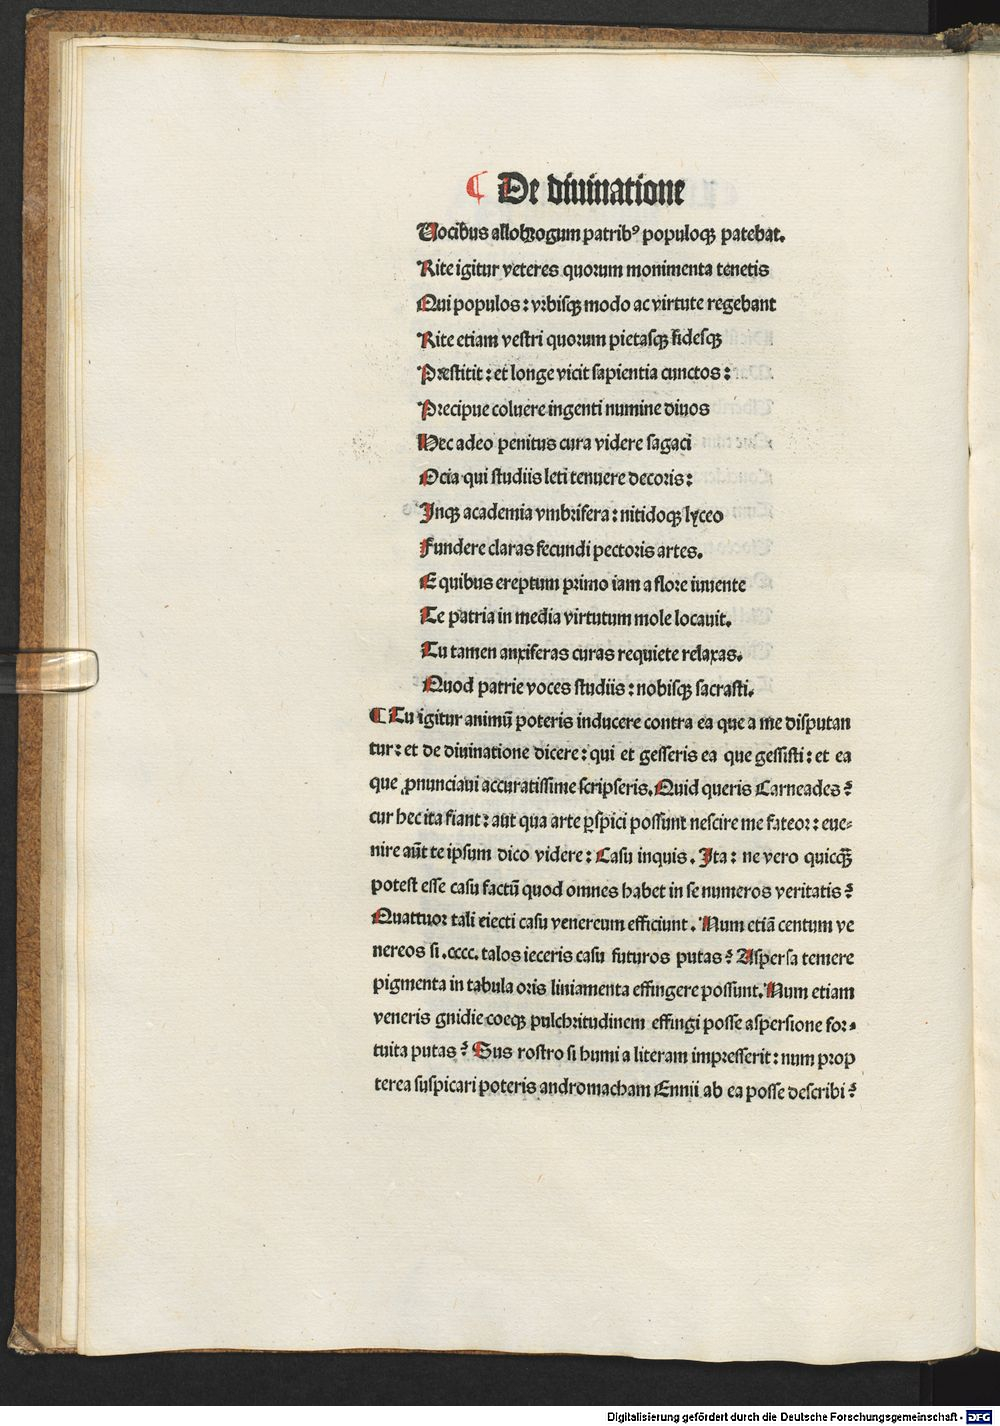 ¶ De diuinatione
Uocibus allobrogum patribꝰ populoqꝫ patebat.
Rite igitur veteres quorum monimenta tenetis
Qui populos: vrbisqꝫ modo ac virtute regebant
Rite etiam vestri quorum pietasqꝫ fidesqꝫ
Prestitit: et longe vicit sapientia cunctos:
Precipue coluere ingenti numine diuos
Hec adeo penitus cura videre sagaci
Ocia qui studiis leti tenuere decoris:
Inqꝫ academia vmbrifera: nitidoqꝫ lyceo
Fundere claras fecundi pectoris artes.
E quibus ereptum primo iam a flore iuuente
Te patria in media virtutum mole locauit.
Tu tamen anxiferas curas requiete relaxas.
Quod patrie voces studiis: nobisqꝫ sacrasti.
¶ Tu igitur animū poteris inducere contra ea que a me disputan
tur: et de diuinatione dicere: qui et gesseris ea que gessisti: et ea
que ꝓnunciaui accuratissime scripseris. Quid queris Carneades?
cur hec ita fiant: aut qua arte ꝑspici possunt nescire me fateor: eue-
nire aūt te ipsum dico videre: Casu inquis. Ita: ne vero quicqꝫ̄
potest esse casu factū quod omnes habet in se numeros veritatis?
Quattuor tali eiecti casu venereum efficiunt. Num etiā centum ve
nereos si .cccc. talos ieceris casu futuros putas? Aspersa temere
pigmenta in tabula oris liniamenta effingere possunt. Num etiam
veneris gnidie coeqꝫ pulchritudinem effingi posse aspersione for-
tuita putas? Sus rostro si humi a literam impresserit: num prop
terea suspicari poteris andromacham Ennii ab ea posse describi?
Digitalisierung gefördert durch die Deutsche Forschungsgemeinschaft - DFG